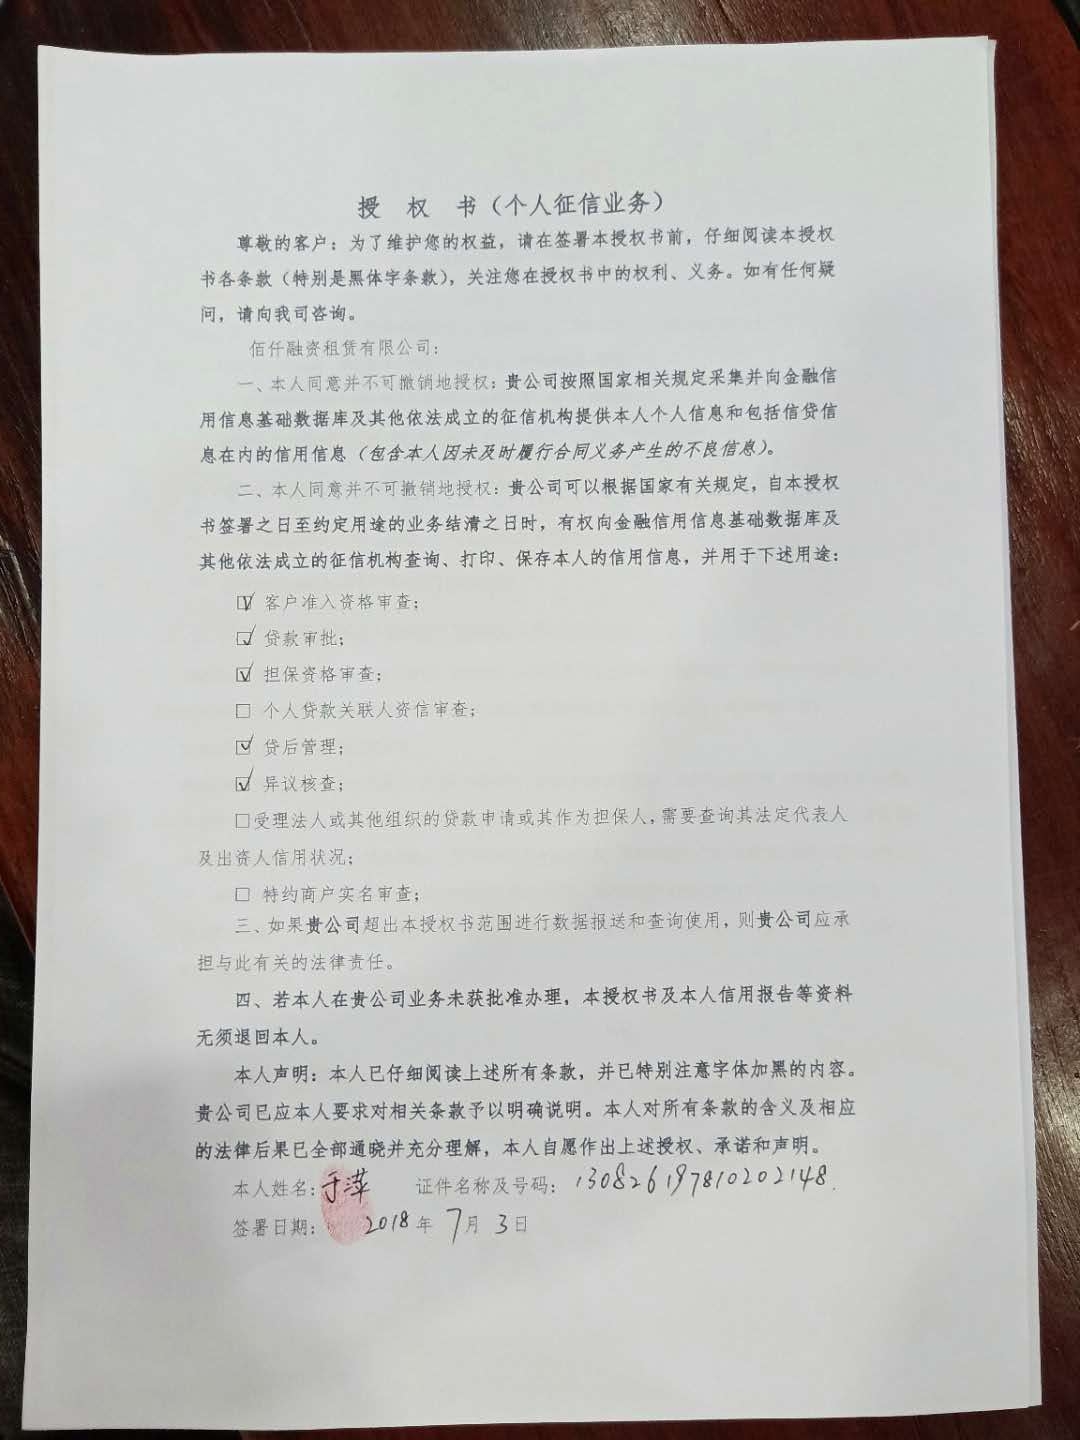 授 权 书（个人征信业务）
尊敬的客户：为了维护您的权益，请在签署本授权书前，仔细阅读本授权
书各条款（特别是黑体字条款），关注您在授权书中的权利、义务。如有任何疑
问，请向我司咨询。
佰仟融资租赁有限公司：
一、本人同意并不可撤销地授权：贵公司按照国家相关规定采集并向金融信
用信息基础数据库及其他依法成立的征信机构提供本人个人信息和包括信贷信
息在内的信用信息（包含本人因未及时履行合同义务产生的不良信息）。
二、本人同意并不可撤销地授权：贵公司可以根据国家有关规定，自本授权
书签署之日至约定用途的业务结清之日时，有权向金融信用信息基础数据库及
其他依法成立的征信机构查询、打印、保存本人的信用信息，并用于下述用途：
☑ 客户准入资格审查；
☑ 贷款审批；
☑ 担保资格审查；
□ 个人贷款关联人资信审查；
☑ 贷后管理；
☑ 异议核查；
□受理法人或其他组织的贷款申请或其作为担保人，需要查询其法定代表人
及出资人信用状况；
□ 特约商户实名审查；
三、如果贵公司超出本授权书范围进行数据报送和查询使用，则贵公司应承
担与此有关的法律责任。
四、若本人在贵公司业务未获批准办理，本授权书及本人信用报告等资料
无须退回本人。
本人声明：本人已仔细阅读上述所有条款，并已特别注意字体加黑的内容。
贵公司已应本人要求对相关条款予以明确说明。本人对所有条款的含义及相应
的法律后果已全部通晓并充分理解，本人自愿作出上述授权、承诺和声明。
本人姓名：于萍 证件名称及号码：130826197810202148.
签署日期： 2018年 7月 3日